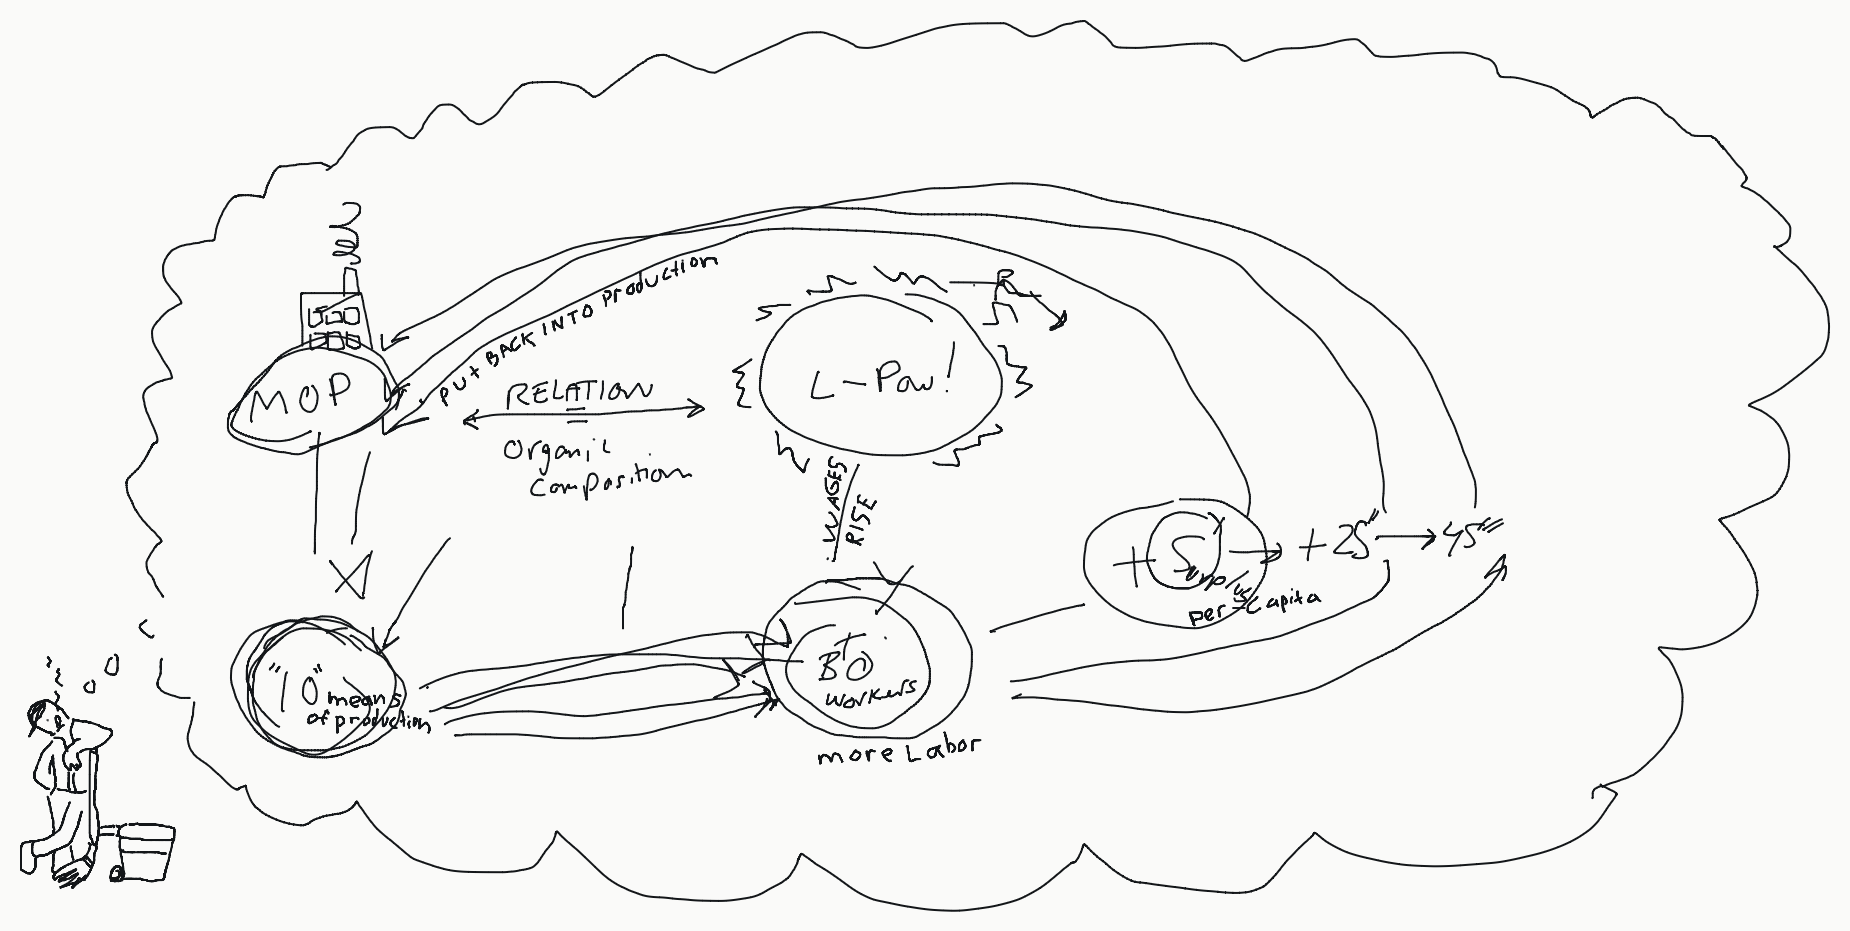 PUT BACK INTO Production
MOP
RELATION
=
Organic
Composition
L-Pow!
WAGES
RISE
+ Surplus
per-capita
+ 25"
45"
"10" means
of production
workers
more Labor